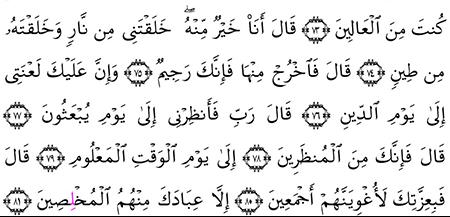 كُنتَ مِنَ ٱلۡعَالِينَ ۝٧٣ قَالَ أَنَا۠ خَيۡرٞ مِّنۡهُ ۖ خَلَقۡتَنِى مِن نَّارٖ وَخَلَقۡتَهُۥ
مِن طِينٖ ۝٧٤ قَالَ فَٱخۡرُجۡ مِنۡهَا فَإِنَّكَ رَجِيمٞ ۝٧٥ وَإِنَّ عَلَيۡكَ لَعۡنَتِى
إِلَىٰ يَوۡمِ ٱلدِّينِ ۝٧٦ قَالَ رَبِّ فَأَنظِرۡنِى إِلَىٰ يَوۡمِ يُبۡعَثُونَ ۝٧٧
قَالَ فَإِنَّكَ مِنَ ٱلۡمُنظَرِينَ ۝٧٨ إِلَىٰ يَوۡمِ ٱلۡوَقۡتِ ٱلۡمَعۡلُومِ ۝٧٩ قَالَ
فَبِعِزَّتِكَ لَأُغۡوِيَنَّهُمۡ أَجۡمَعِينَ ۝٨٠ إِلَّا عِبَادَكَ مِنۡهُمُ ٱلۡمُخۡلِصِينَ ۝٨١